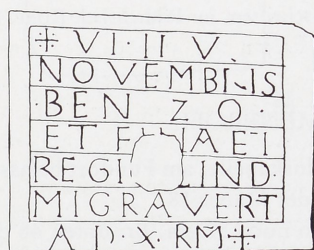 + VI · II V ·
NOVEMBRIS
· BEN ZO ·
ET FILIA EI
REGI LIND·
MIGRAVERT
A D · X · RM̄ +